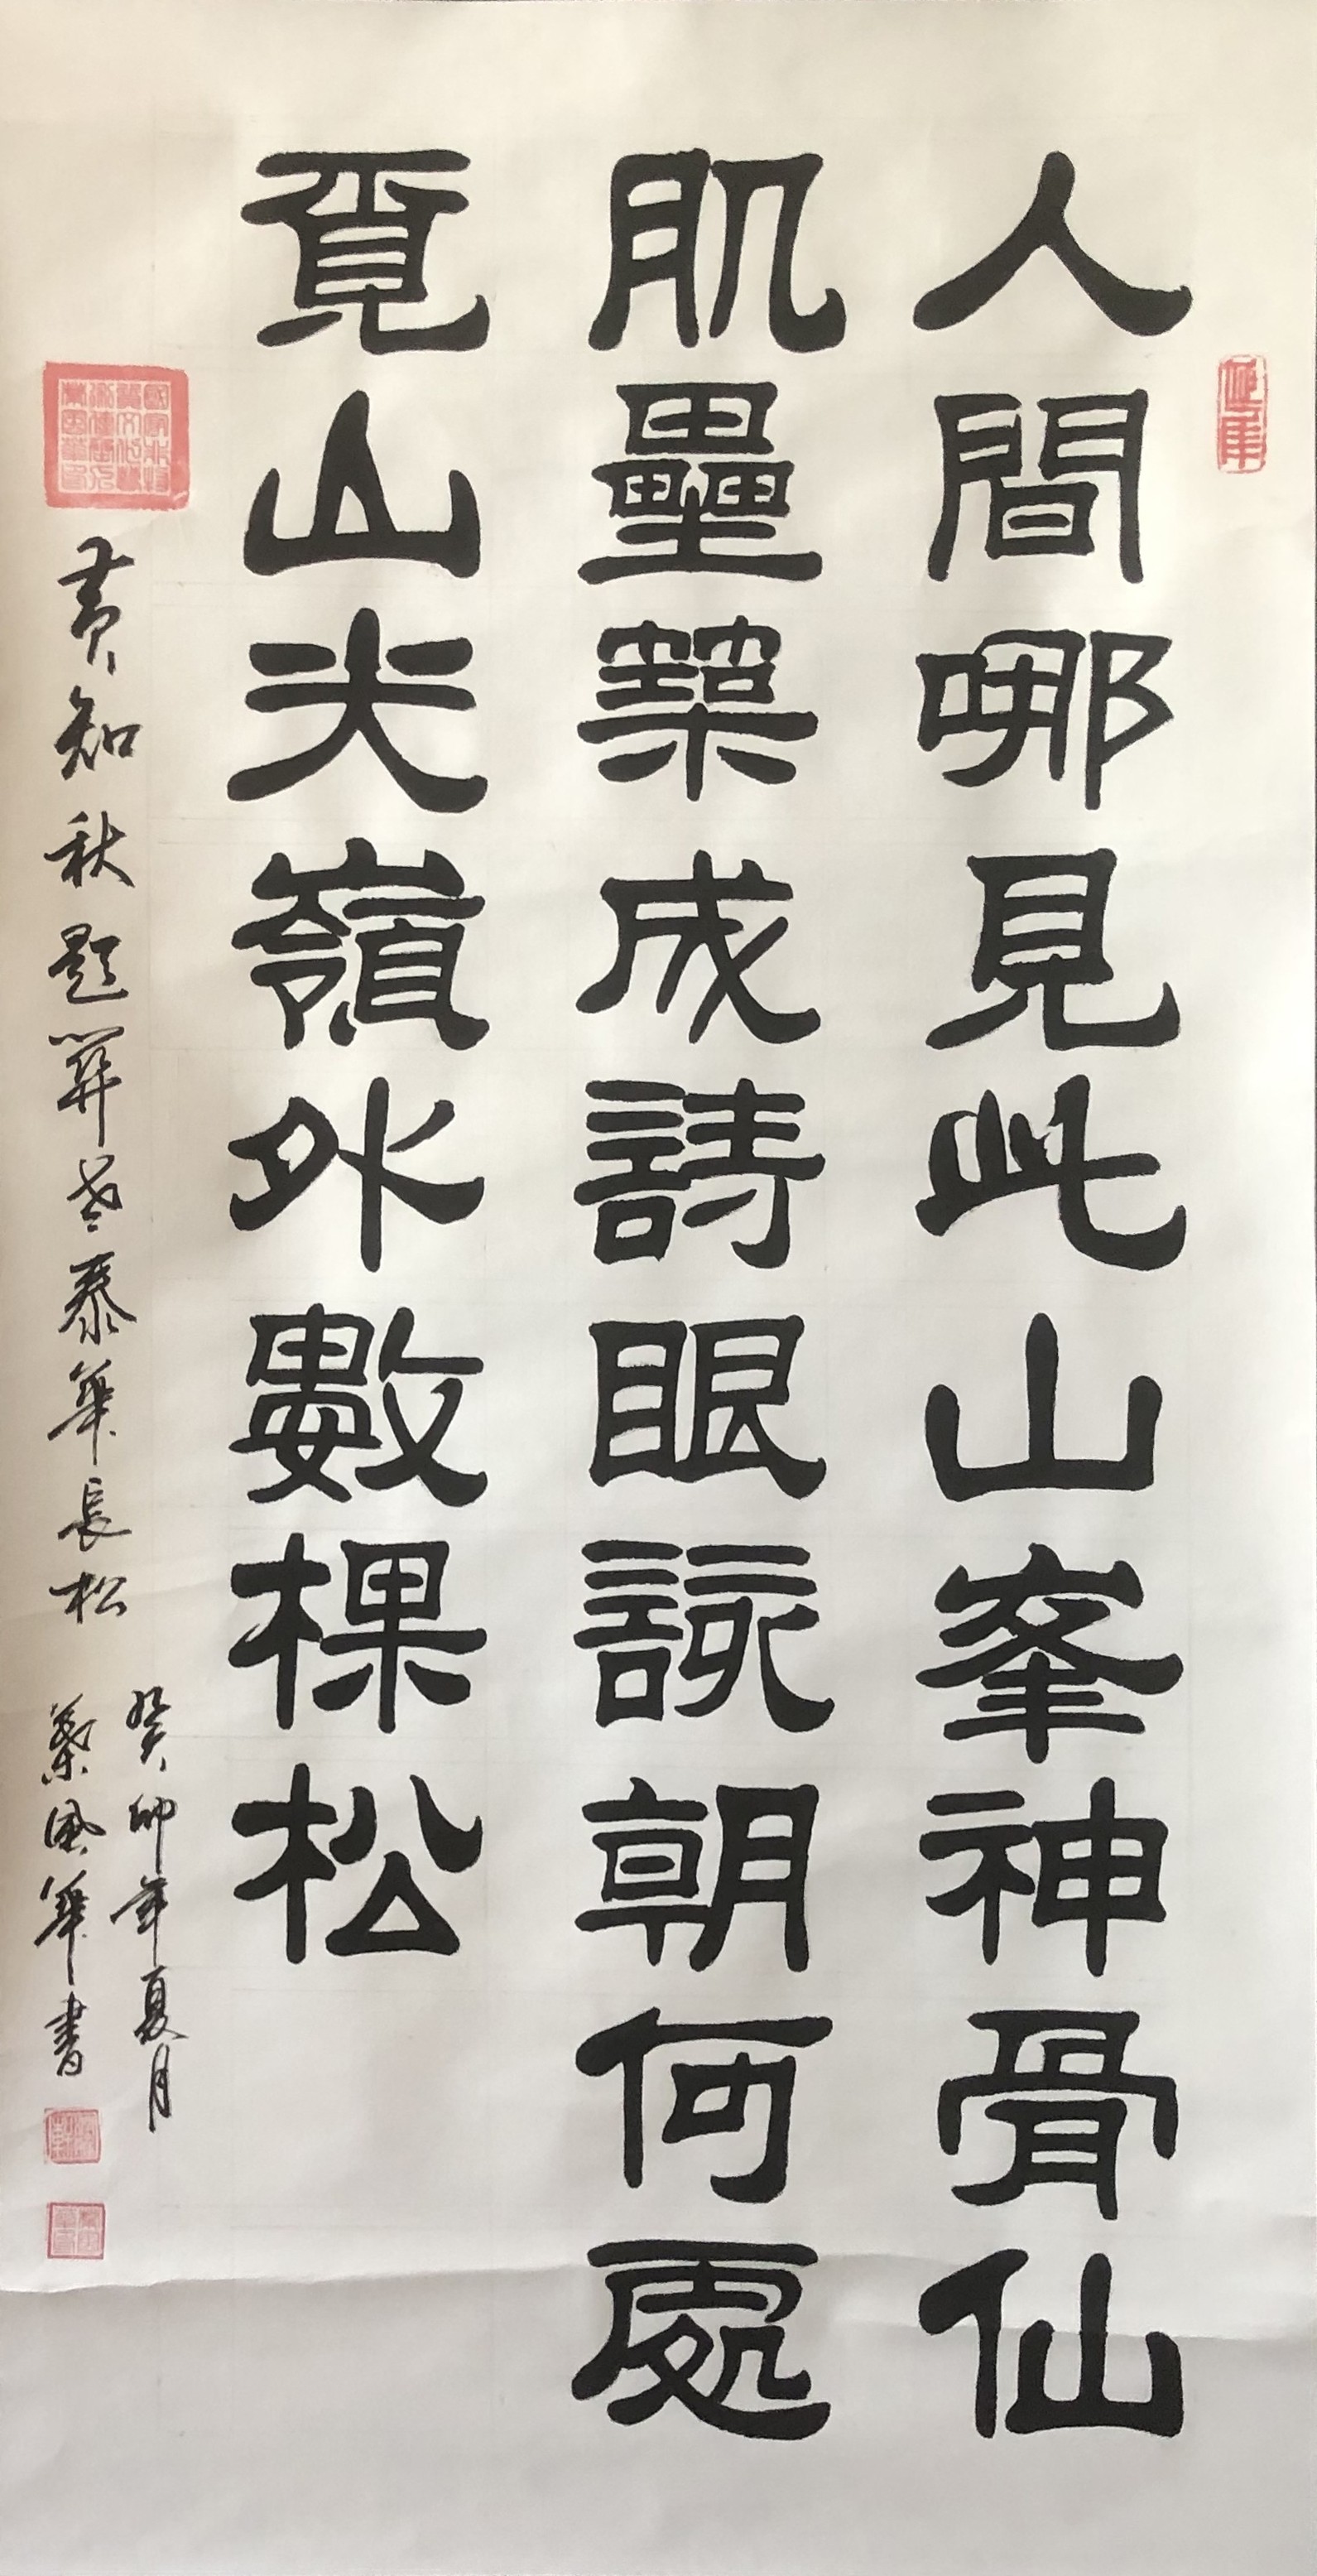 人間哪見此山峯神骨仙
肌壘築成詩眼詠朝何處
覓山尖嶺外數棵松
黃知秋題 泰華長松
癸卯年夏月
風華書